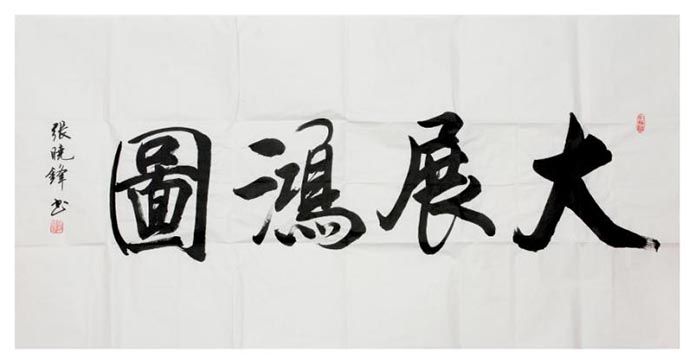 大展鴻圖
張曉鋒书